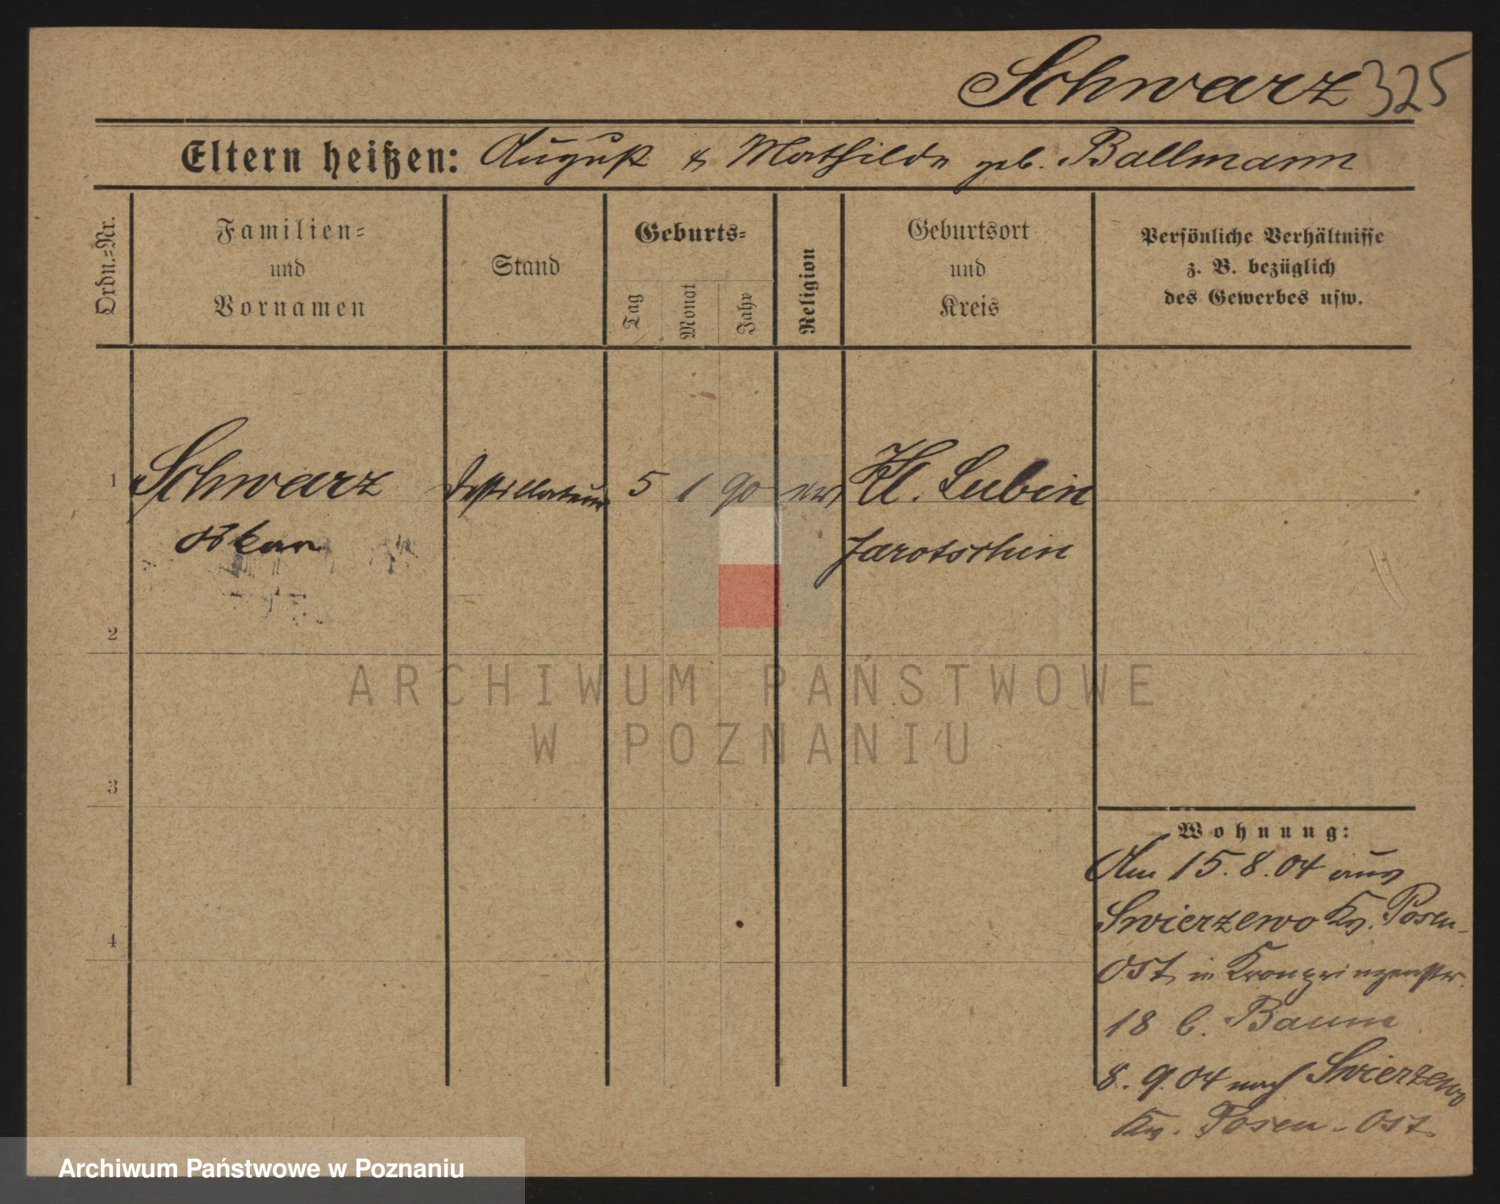 Schwarz 325
Eltern heißen: August & Mathilde geb. Ballmann
Ordn.-Nr.
Familien-
und
Vornamen
Stand
Geburts-
Tag
Monat
Jahr
Religion
Geburtsort
und
Kreis
Persönliche Verhältnisse
z. B. bezüglich
des Gewerbes usw.
1 Schwarz 5 1 90 Kl. Lubin
Oskar Jarotschin
2
ARCHIWUM PAŃSTWOWE
W POZNANIU
3
Wohnung:
Am 15.8.04 aus
Swierzewo Kr. Posen-
Ost in Kronprinzenstr.
18 b. Baum
8.9.04 nach Swierzewo
Kr. Posen-Ost
4
Archiwum Państwowe w Poznaniu